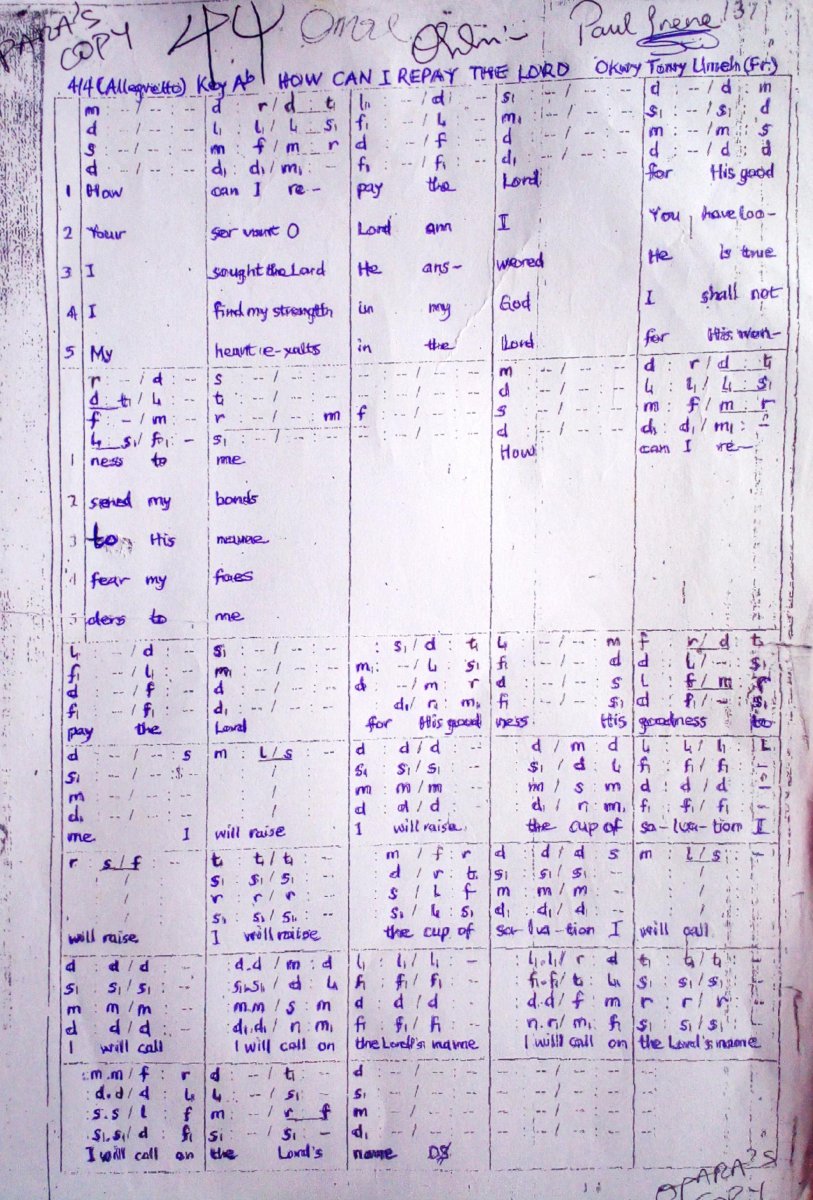 PARA'S COPY 44 Paul Irene 137
4/4 (Allegretto) Key Ab HOW CAN I REPAY THE LORD Okwy Tonny Umeh (Fr.)
m : - / - : - d : r / d : t l₁ : - / d : - s₁ : - / - : - d : - / d : m
d : - / - : - l₁ : l₁ / l₁ : s₁ f₁ : - / l₁ : - m₁ : - / - : - s₁ : - / s₁ : d
s : - / - : - m : f / m : r d : - / f : - d : - / - : - m : - / m : s
d : - / - : - d₁ : d₁ / m₁ : - f₁ : - / f₁ : - d₁ : - / - : - d : - / d : d
1 How can I re- pay the Lord for His good
2 Your servant O Lord am I You have loo-
3 I sought the Lord He ans- wered He is true
4 I find my strength in my God I shall not
5 My heart e-xalts in the Lord for His won-
r : - / d : - s : - / - : - m : - / - : - d : r / d : t
d : t₁ / l₁ : - t : - / - : - d : - / - : - l₁ : l₁ / l₁ : s₁
f : - / m : - r : - / - : m f : - / - : - s : - / - : - m : f / m : r
l₁ : s₁ / f₁ : - s₁ : - / - : - d : - / - : - d₁ : d₁ / m₁ : -
1 ness to me How can I re-
2 sened my bonds
3 to His name
4 fear my foes
5 ders to me
l₁ : - / d : - s₁ : - / - : - : s₁ / d : t₁ l₁ : - / - : m f : r / d : t
f₁ : - / l₁ : - m₁ : - / - : - m₁ : - / l₁ : s₁ f₁ : - / - : d d : l₁ / - : s₁
d : - / f : - d : - / - : - d : - / m : r d : - / - : s l : f / m : r
f₁ : - / f₁ : - d₁ : - / - : - : d₁ / n : m₁ f₁ : - / - : s₁ d : f₁ / - : s₁
pay the Lord for His good ness His goodness to
d : - / - : s m : l / s : - d : d / d : - : d / m : d l₁ : l₁ / l₁ : l
s₁ : - / - : s / s₁ : s₁ / s₁ : s₁ / d : l₁ f₁ : f₁ / f₁ : -
m : - / - : - / m : m / m : m / s : m d : d / d : -
d₁ : - / - : - / d : d / d : d₁ / n : m₁ f₁ : f₁ / f₁ : -
me I will raise I will raise the cup of sa-lva-tion I
r : s / f : - t₁ : t₁ / t₁ : - : m / f : r d : d / d : s m : l / s : -
/ s₁ : s₁ / s₁ : d / r : t₁ s₁ : s₁ / s₁ : - /
/ r : r / r : s / l : f m : m / m : - /
/ s₁ : s₁ / s₁ : - : s₁ / l₁ : s₁ d₁ : d₁ / d : - /
will raise I will raise the cup of sa-lva-tion I will call
d : d / d : - : d.d / m : d l₁ : l₁ / l₁ : - : l₁.l₁ / r : d t₁ : t₁ / t₁ : -
s₁ : s₁ / s₁ : - : s₁.s₁ / d : l₁ f₁ : f₁ / f₁ : : f₁.f₁ / t₁ : l₁ s₁ : s₁ / s₁ : -
m : m / m : - : m.m / s : m d : d / d : d.d / f : m r : r / r : -
d : d / d : - : d₁.d₁ / n : m₁ f₁ : f₁ / f₁ : - : n.r₁ / m₁ : f₁ s₁ : s₁ / s₁ : -
I will call I will call on the Lord's name I will call on the Lord's name
: m.m / f : r d : - / t₁ : - d : - / - : -
: d.d / d : l₁ l₁ : - / s₁ : - s₁ : - / - : -
: s.s / l : f m : - / r : f m : - / - : -
: s₁.s₁ / d : f₁ s₁ : - / s₁ : - d₁ : - / - : -
I will call on the Lord's name DS
OPARA'S
COPY